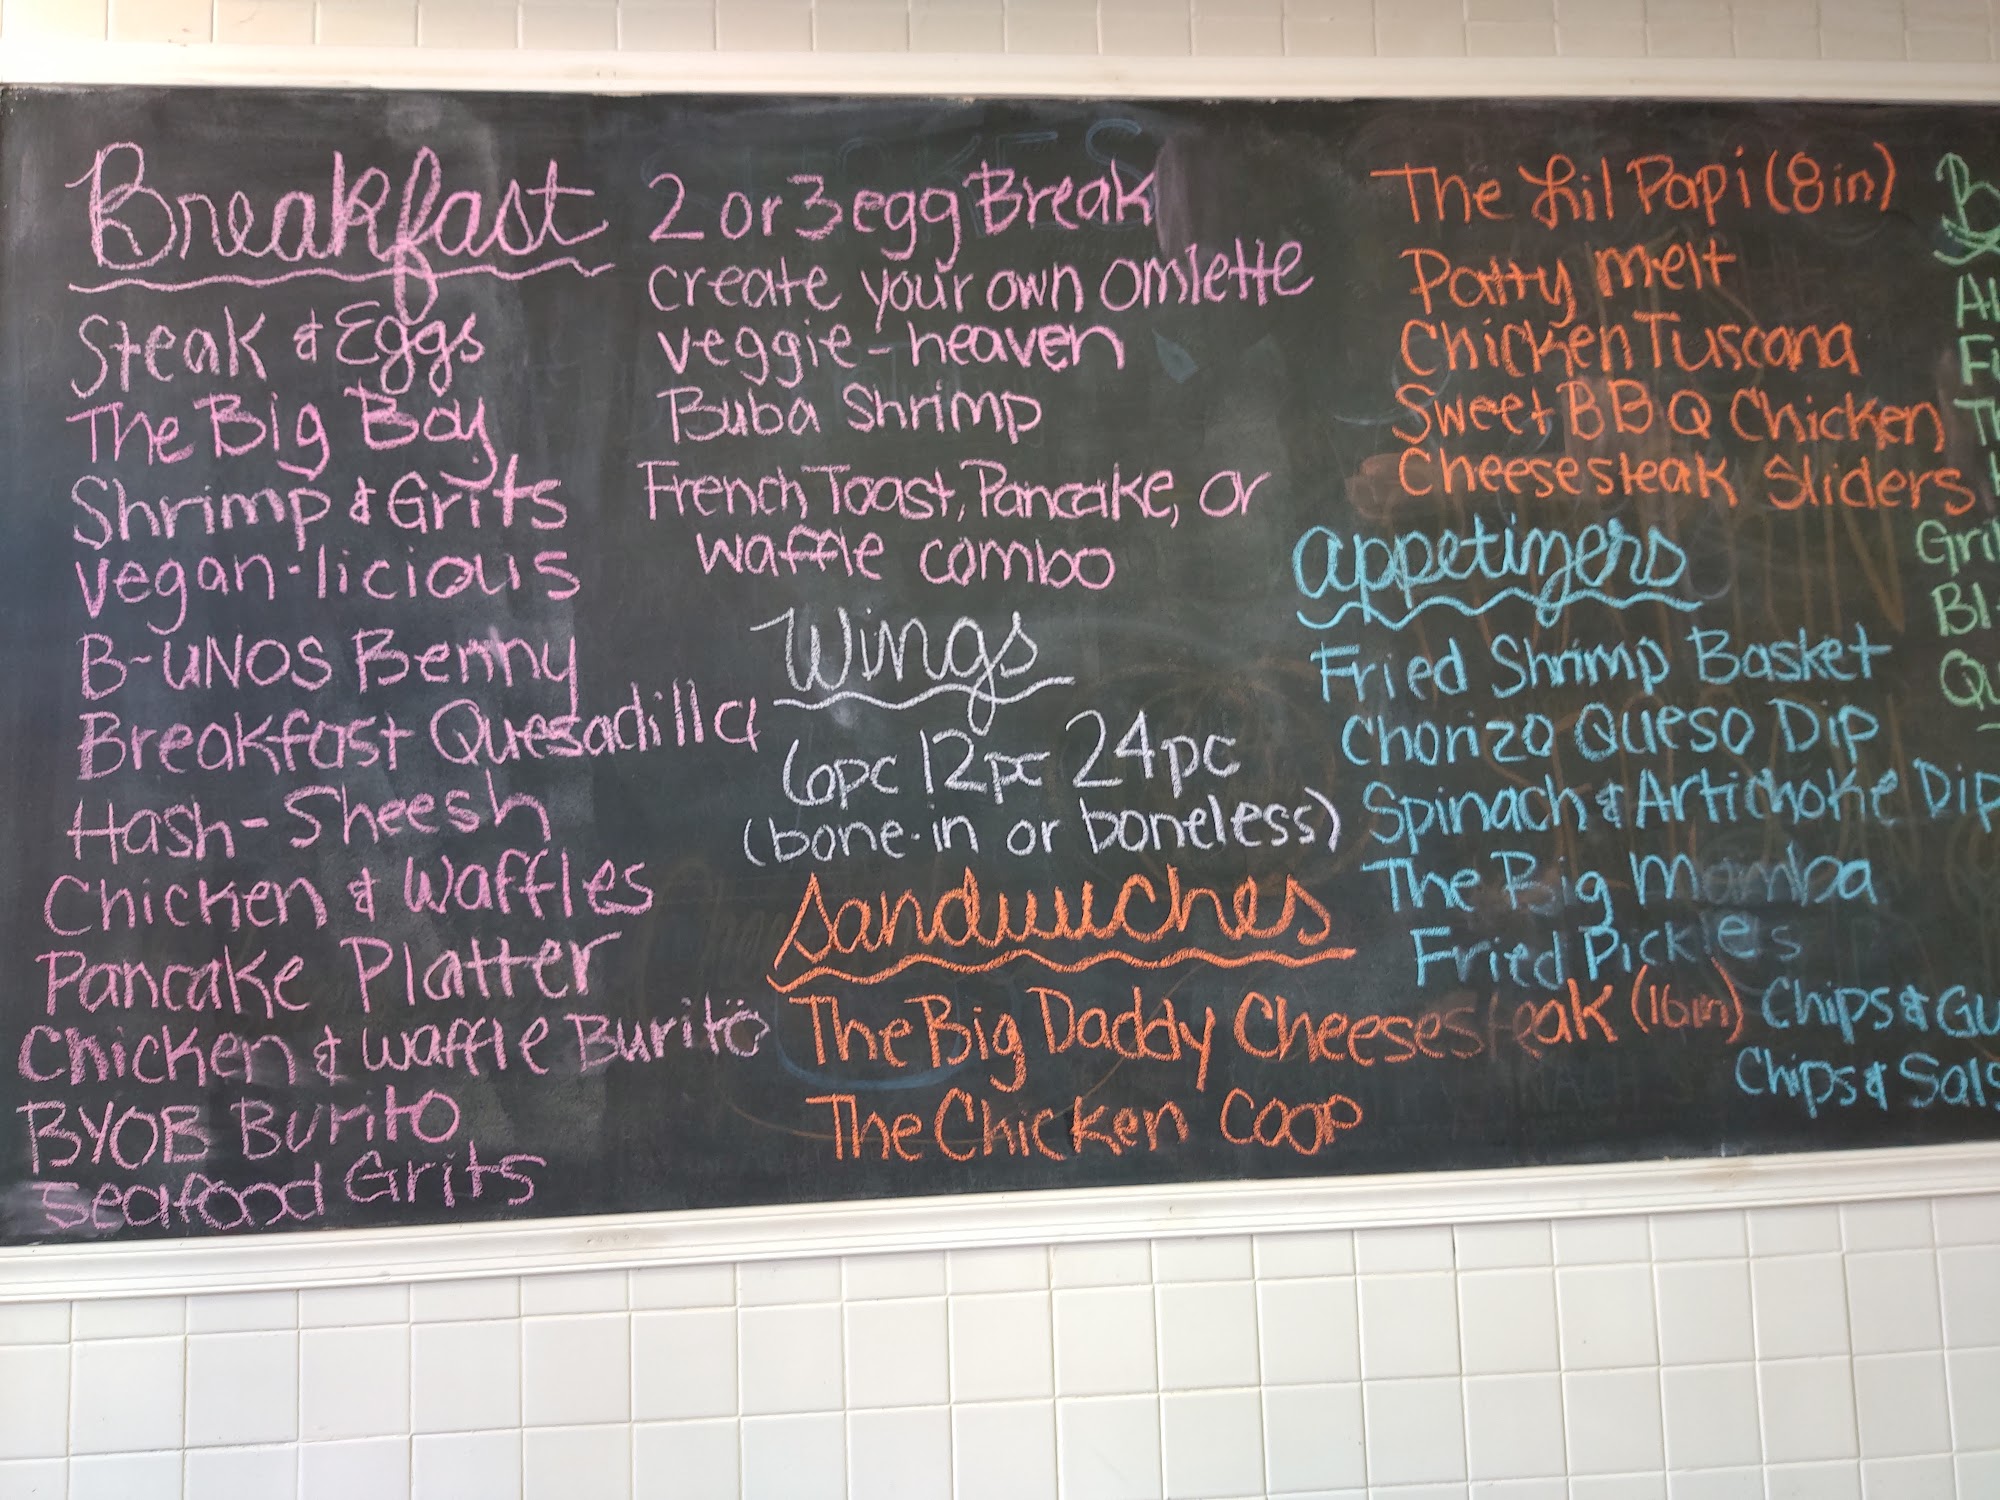 Breakfast
Steak & Eggs
The Big Boy
Shrimp & Grits
Vegan-licious
B-UNOS Benny
Breakfast Quesadilla
Hash-Sheesh
Chicken & Waffles
Pancake Platter
Chicken & Waffle Burito
BYOB Burito
Seafood Grits
2 or 3 egg Break
create your own omlette
veggie-heaven
Buba Shrimp
French Toast, Pancake, or
waffle combo
Wings
6pc 12pc 24pc
(bone-in or boneless)
Sandwiches
The Big Daddy Cheesesteak (16in)
The Chicken COOP
The Lil Papi (8in)
Patty melt
Chicken Tuscana
Sweet BBQ Chicken
Cheesesteak Sliders
appetizers
Fried Shrimp Basket
Chorizo Queso Dip
Spinach & Artichoke Dip
The Big Mamba
Fried Pickles
Chips &
Chips &